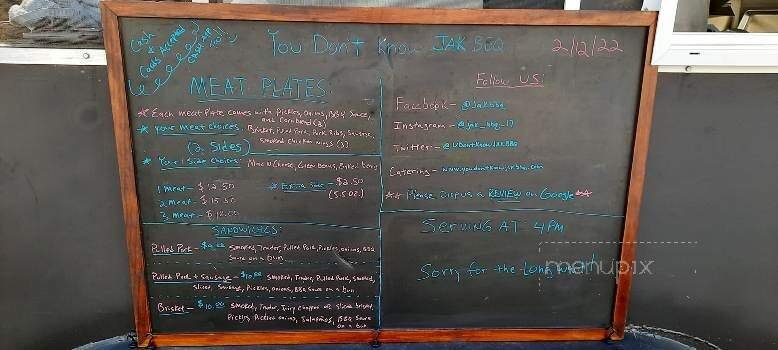 Cash
&
Cards Accepted
You Don't Know JAK BBQ
2/12/22
MEAT PLATES:
* Each meat Plate comes with Pickles, Onions, BBQ Sauce,
and Cornbread
* Your meat choices: Brisket, Pulled Pork, Pork Ribs, Sausage,
(2 Sides) Smoked Chicken wings (3)
* Your Side Choices: Mac N Cheese, Green Beans, Baked Beans
1 meat - $12.50
2 meat - $15.50
3 meat -
* Extra Side - $2.50
(5.5oz.)
SANDWICHES:
Pulled Pork - Smoked, Tender, Pulled Pork, Pickles, onions, BBQ
Sauce on a bun
Pulled Pork + Sausage - $10.00 Smoked, Tender, Pulled Pork, Smoked,
sliced, Sausage, Pickles, onions, BBQ Sauce on a bun
Brisket - $10.00 Smoked, Tender, Juicy Chopped or Sliced brisket,
Pickles, Pickled onions, Jalapeños, BBQ Sauce
on a bun
Follow US:
Facebook - @jakbbq
Instagram - @jak_bbq_17
Twitter - @UDontKnowJAKBBQ
Catering - www.youdontknowjakbbq.com
** Please Drop us a REVIEW on Google **
SERVING AT 4PM
Sorry for the Long Wait!
menupix